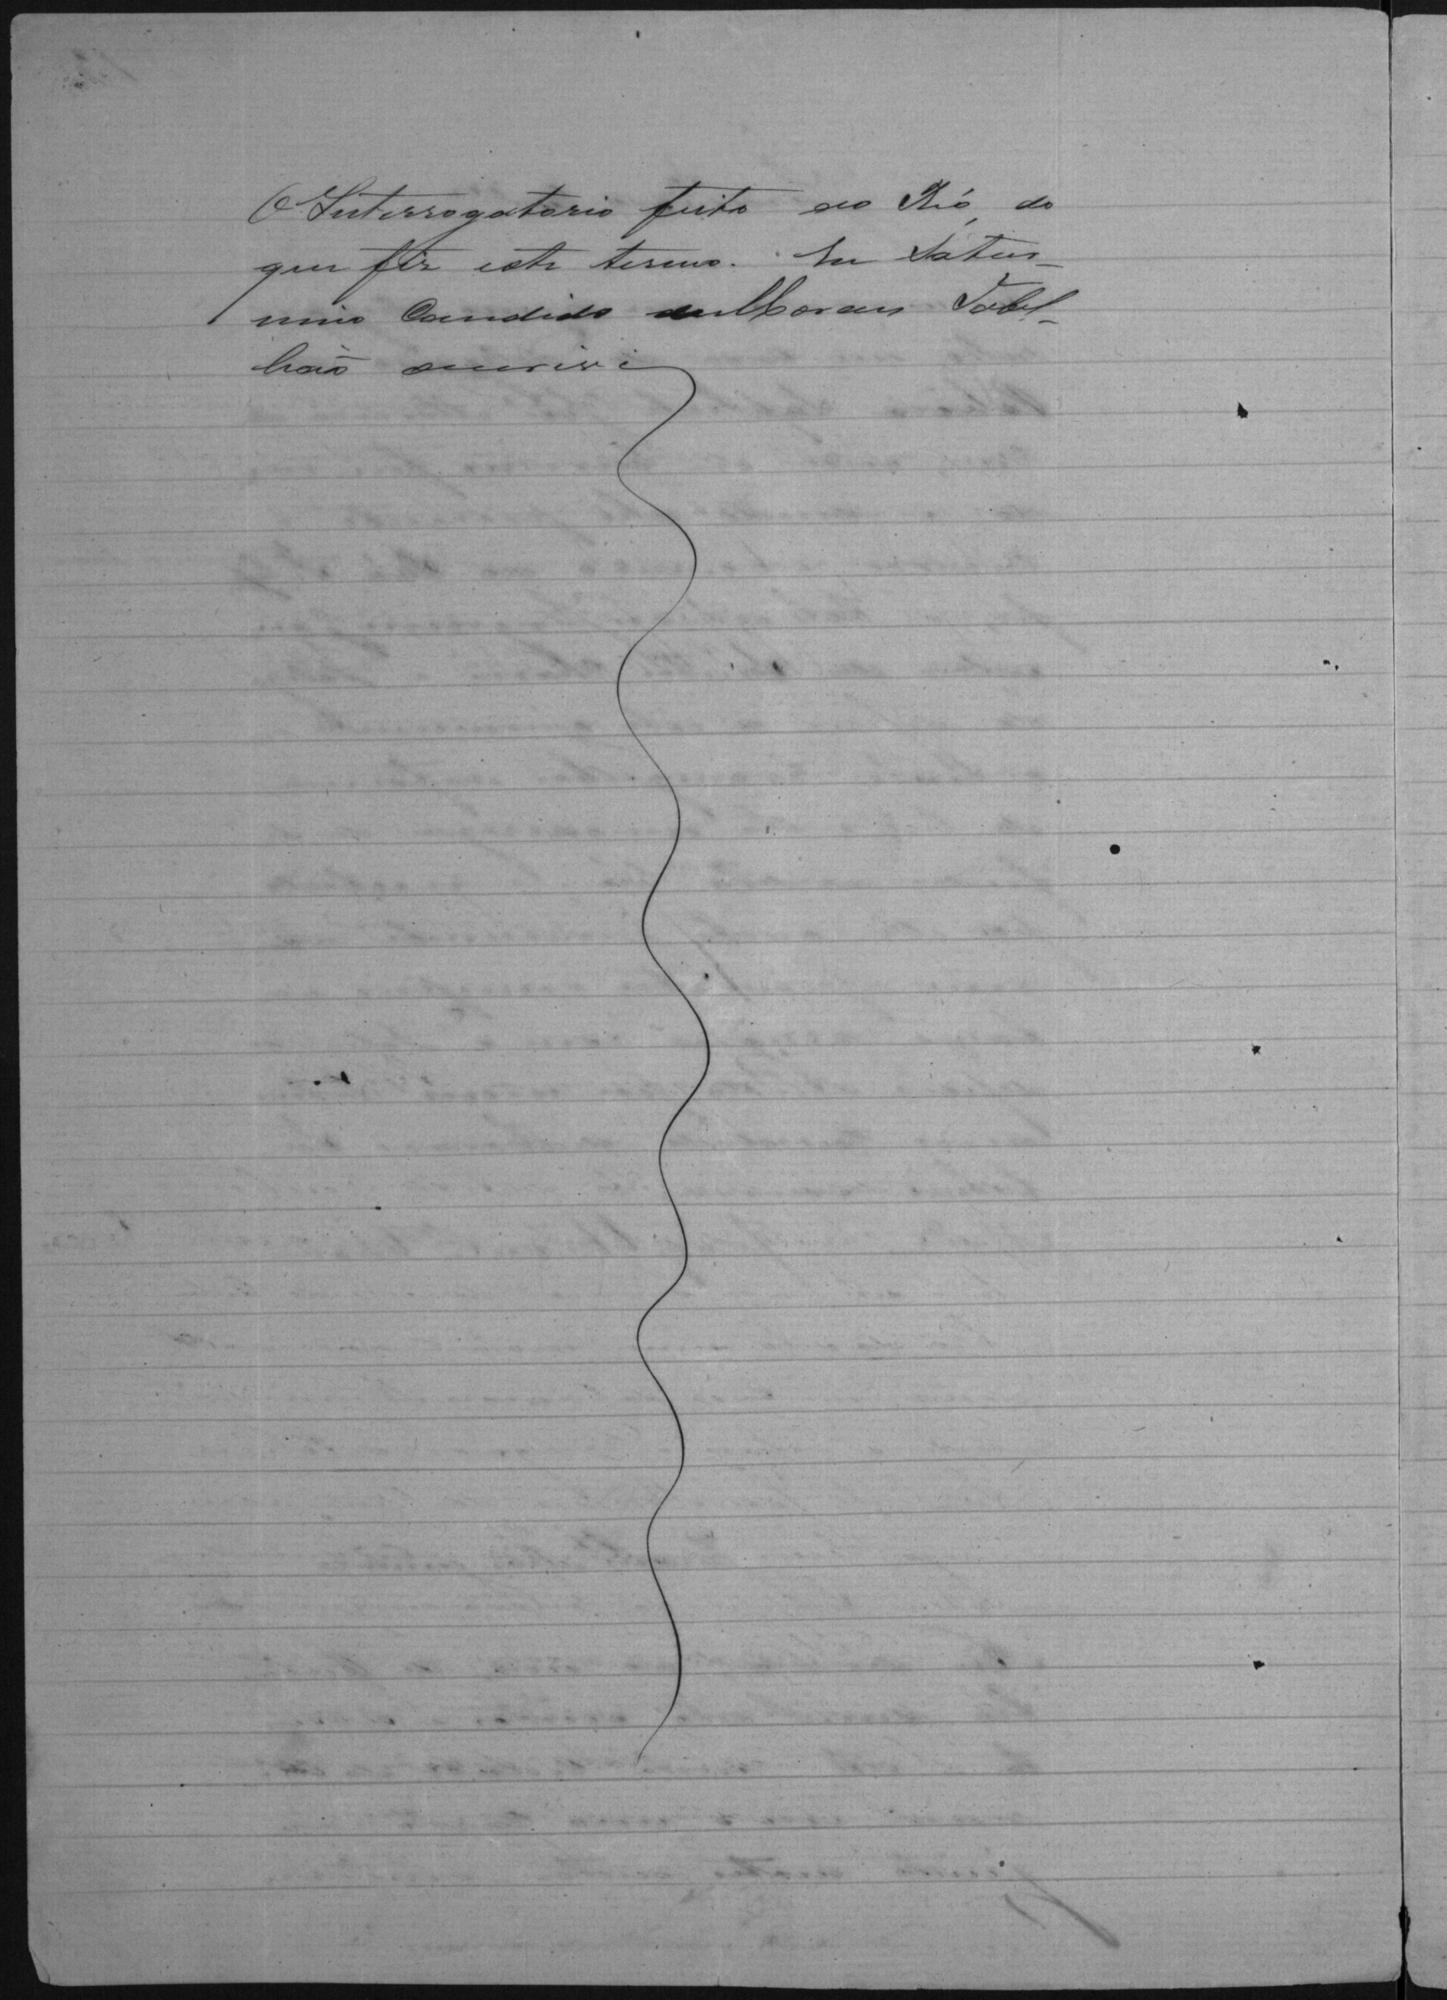 O Interrogatorio feito ao Réo, do
que fiz este termo. Eu Satur-
nino Candido de Moraes Tabel-
lião escrevi